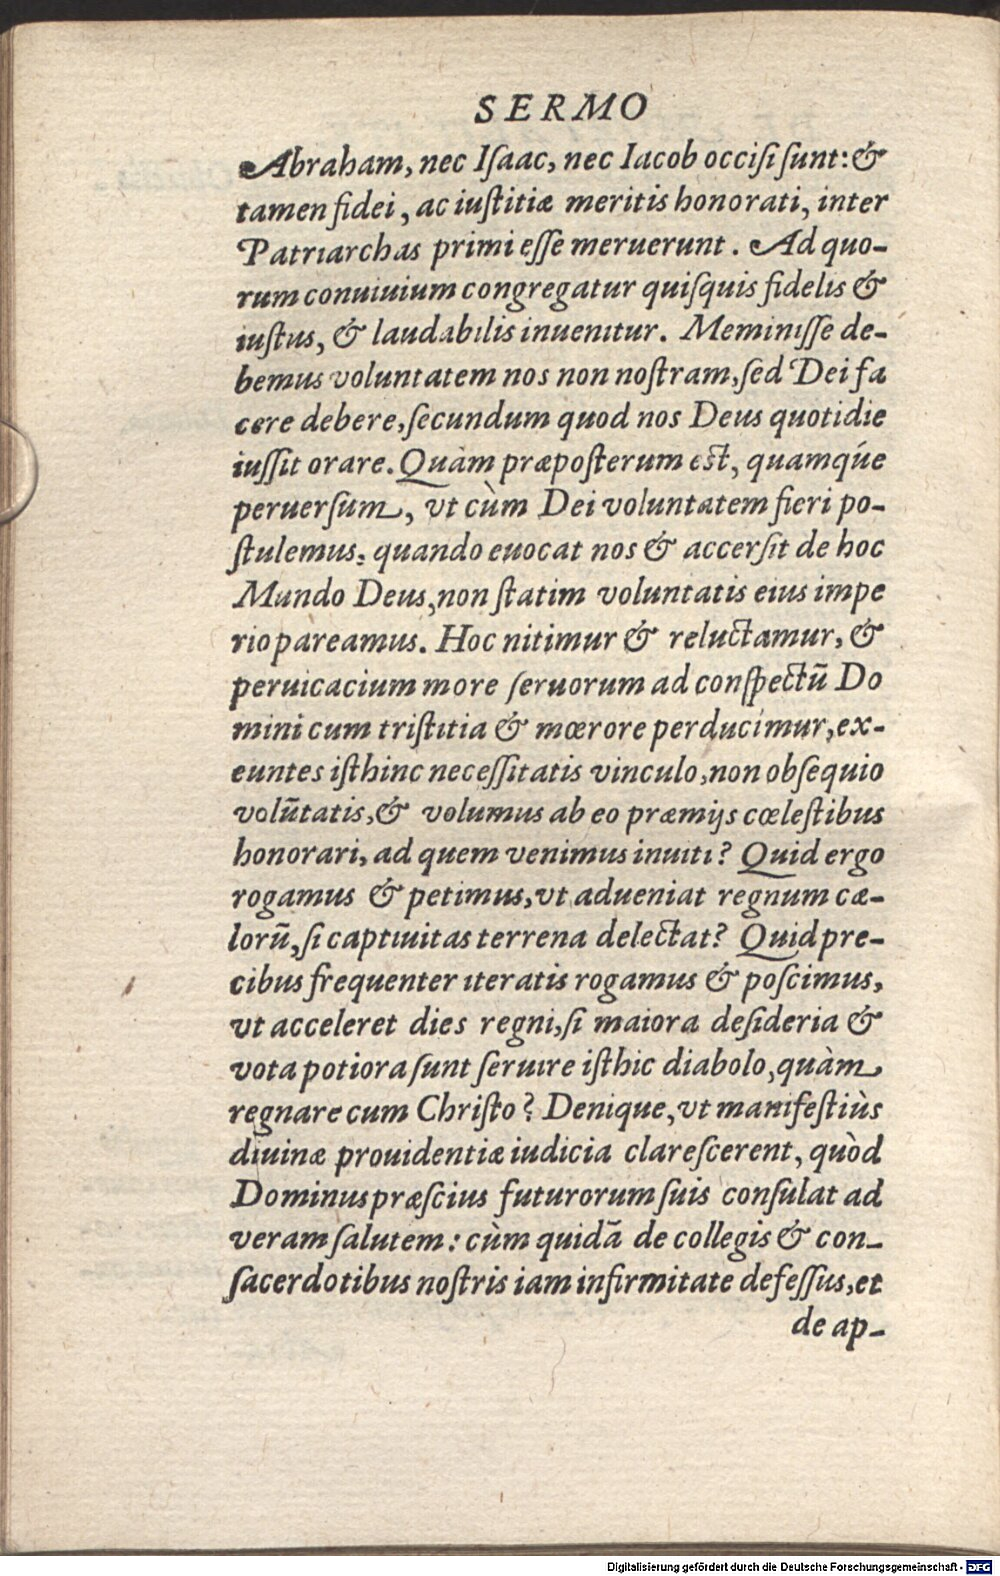 SERMO
Abraham, nec Iſaac, nec Iacob occiſi ſunt: &
tamen fidei, ac iuſtitiæ meritis honorati, inter
Patriarchas primi eſſe meruerunt. Ad quo-
rum conuiuium congregatur quiſquis fidelis &
iuſtus, & laudabilis inuenitur. Meminiſſe de-
bemus voluntatem nos non noſtram, ſed Dei fa
cere debere, ſecundum quod nos Deus quotidie
iuſſit orare. Quàm præpoſterum eſt, quamq́ue
peruerſum, vt cùm Dei voluntatem fieri po-
ſtulemus: quando euocat nos & accerſit de hoc
Mundo Deus, non ſtatim voluntatis eius impe
rio pareamus. Hoc nitimur & reluctamur, &
peruicacium more ſeruorum ad conſpectū Do
mini cum triſtitia & mœrore perducimur, ex-
euntes iſthinc neceſſitatis vinculo, non obſequio
volūtatis, & volumus ab eo præmijs cœleſtibus
honorari, ad quem venimus inuiti? Quid ergo
rogamus & petimus, vt adueniat regnum cæ-
lorū, ſi captiuitas terrena delectat? Quid pre-
cibus frequenter iteratis rogamus & poſcimus,
vt acceleret dies regni, ſi maiora deſideria &
vota potiora ſunt ſeruire iſthic diabolo, quàm
regnare cum Chriſto? Denique, vt manifeſtiùs
diuinæ prouidentiæ iudicia clareſcerent, quòd
Dominus præſcius futurorum ſuis conſulat ad
veram ſalutem: cùm quidã de collegis & con-
ſacerdotibus noſtris iam infirmitate defeſſus, et
de ap-
Digitalisierung gefördert durch die Deutsche Forschungsgemeinschaft - DFG